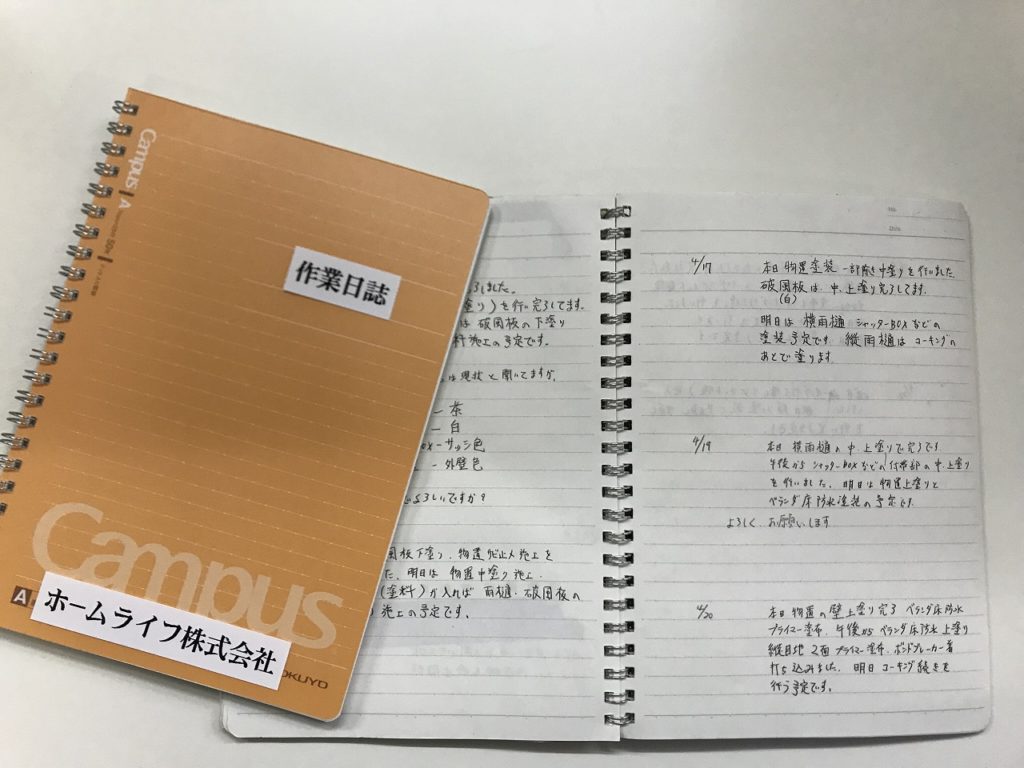 Campus
A
作業日誌
Campus
A
ホームライフ株式会社
KOKUYO
しました。
塗り)を行い完了してます。
は 破風板の下塗り
施工の予定です。
は現状と聞いてますが、
― 茶
― 白
BOX ― サッシ色
― 外壁色
よろしいですか?
風板下塗り、物置サビ止メ施工を
た、明日は 物置中塗り施工、
(塗料)が入れば 雨樋・破風板の
施工の予定です。
No.
Date
4/17 本日 物置塗装 一部除き中塗りを行いました
破風板は 中、上塗り完了してます。
(白)
明日は 横雨樋 シャッターBOXなどの
塗装予定です 縦雨樋はコーキングの
あとで塗ります。
4/19 本日 横雨樋の中、上塗りで完了です
午後から シャッターBOXなどの付帯部の中、上塗り
を行いました、明日は物置上塗りと
ベランダ床防水塗装の予定です。
よろしく、お願いします
4/20 本日 物置の壁上塗り完了 ベランダ床防水
プライマー塗布、午後から ベランダ床防水上塗り
縦目地 2面 プライマー塗布、ボンドブレーカー着
打ち込みました、明日 コーキング続きを
行う予定です。